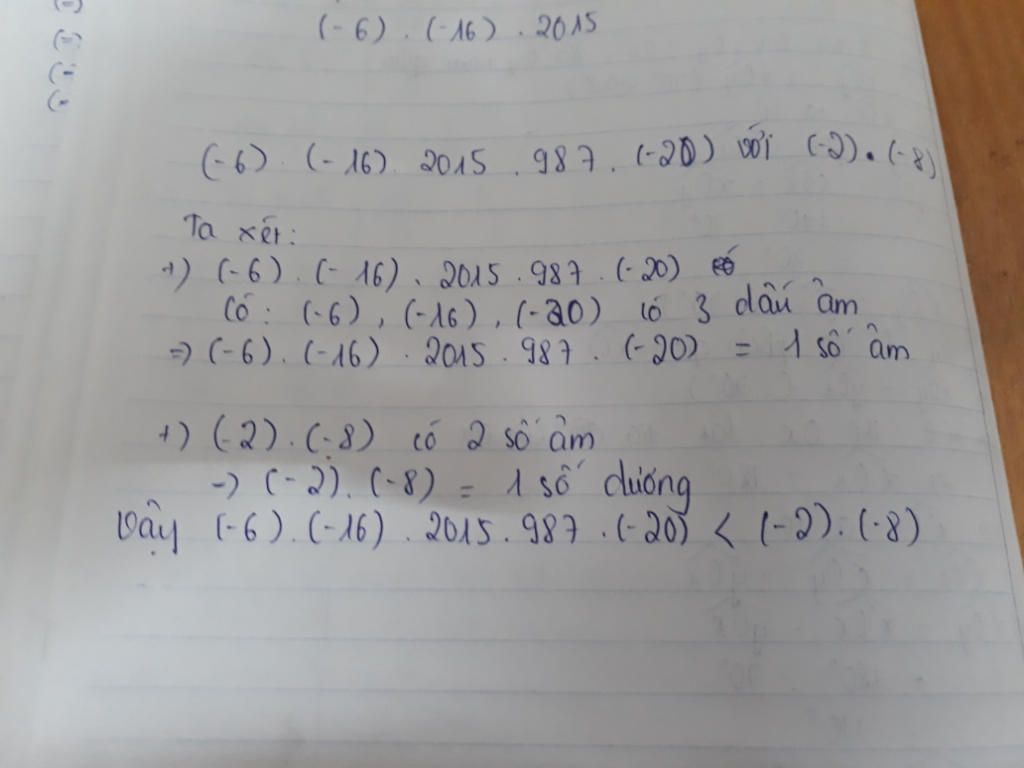 (-6) . (-16) . 2015
(-6) . (-16) . 2015 . 987 . (-20) với (-2) . (-8)
Ta xét:
+) (-6) . (-16) . 2015 . 987 . (-20)
Có : (-6) , (-16) , (-20) có 3 dấu âm
=> (-6) . (-16) . 2015 . 987 . (-20) = 1 số âm
+) (-2) . (-8) có 2 số âm
-> (-2) . (-8) = 1 số dương
Vậy (-6) . (-16) . 2015 . 987 . (-20) < (-2) . (-8)